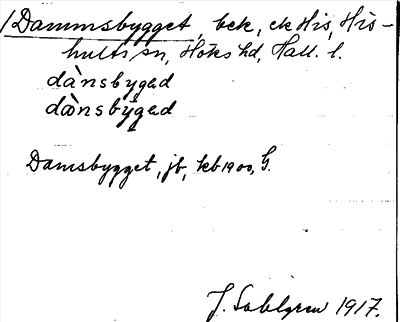 /Dammsbygget, bek, ek His, His-
hults sn, Höks hd, Hall. l.
dànsbygəd
dæ̀nsbygəd
Damsbygget, jb, kb 1900, G.
J. Sahlgren 1917.